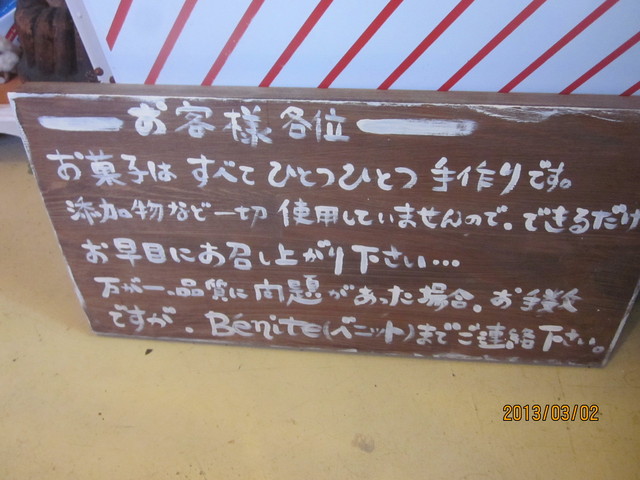 お客様各位
お菓子は すべて ひとつひとつ 手作りです。
添加物など一切 使用していませんので、できるだけ
お早目にお召し上がり下さい…
万が一、品質に問題があった場合、お手数
ですが、Bénite(ベニット)までご連絡下さい。
2013/03/02